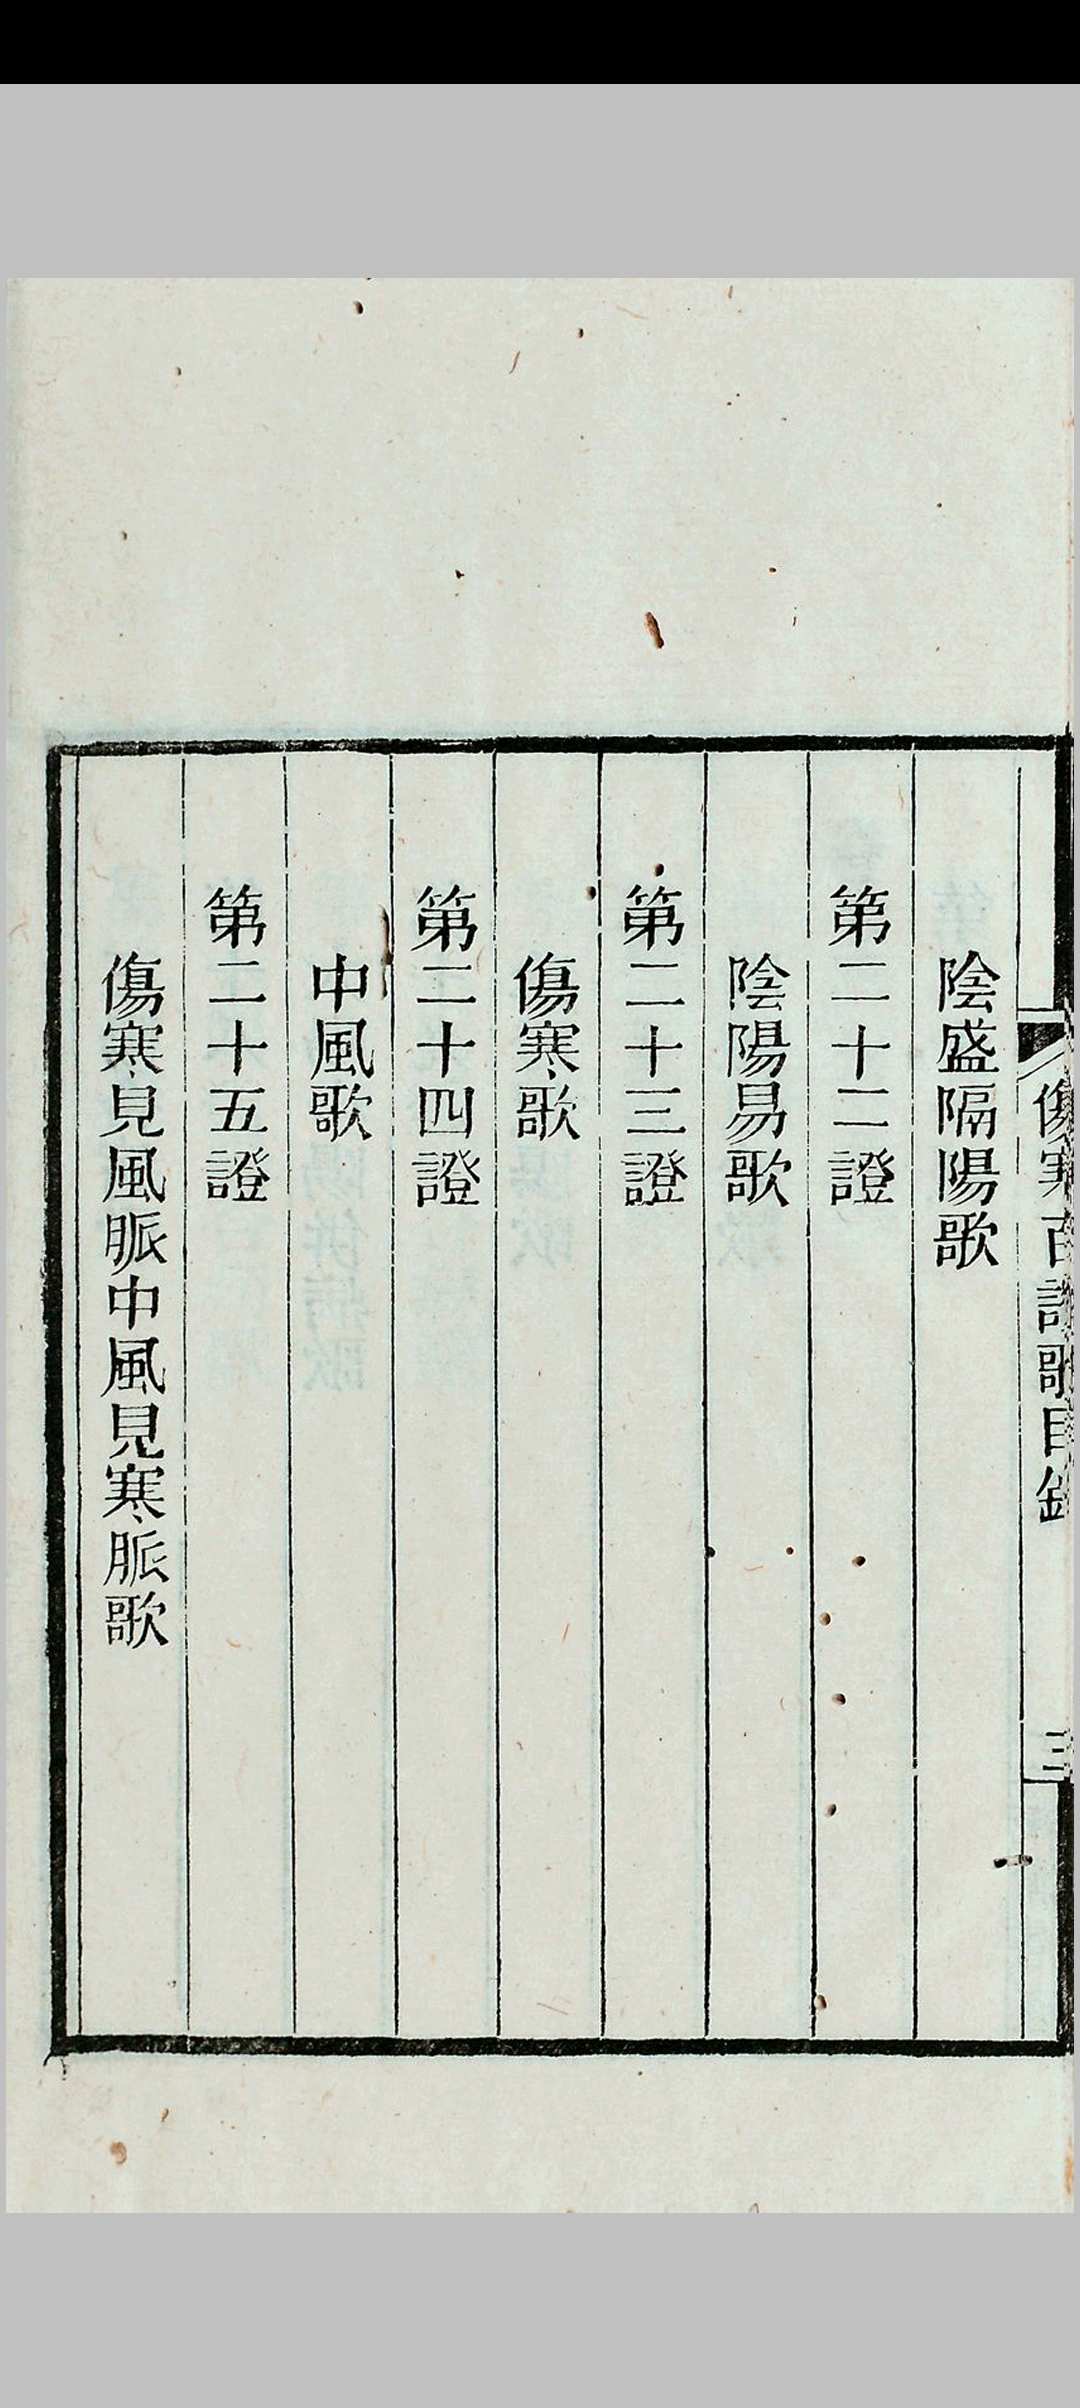 傷寒百證歌目錄
三
陰盛隔陽歌
第二十二證
陰陽易歌
第二十三證
傷寒歌
第二十四證
中風歌
第二十五證
傷寒見風脈中風見寒脈歌